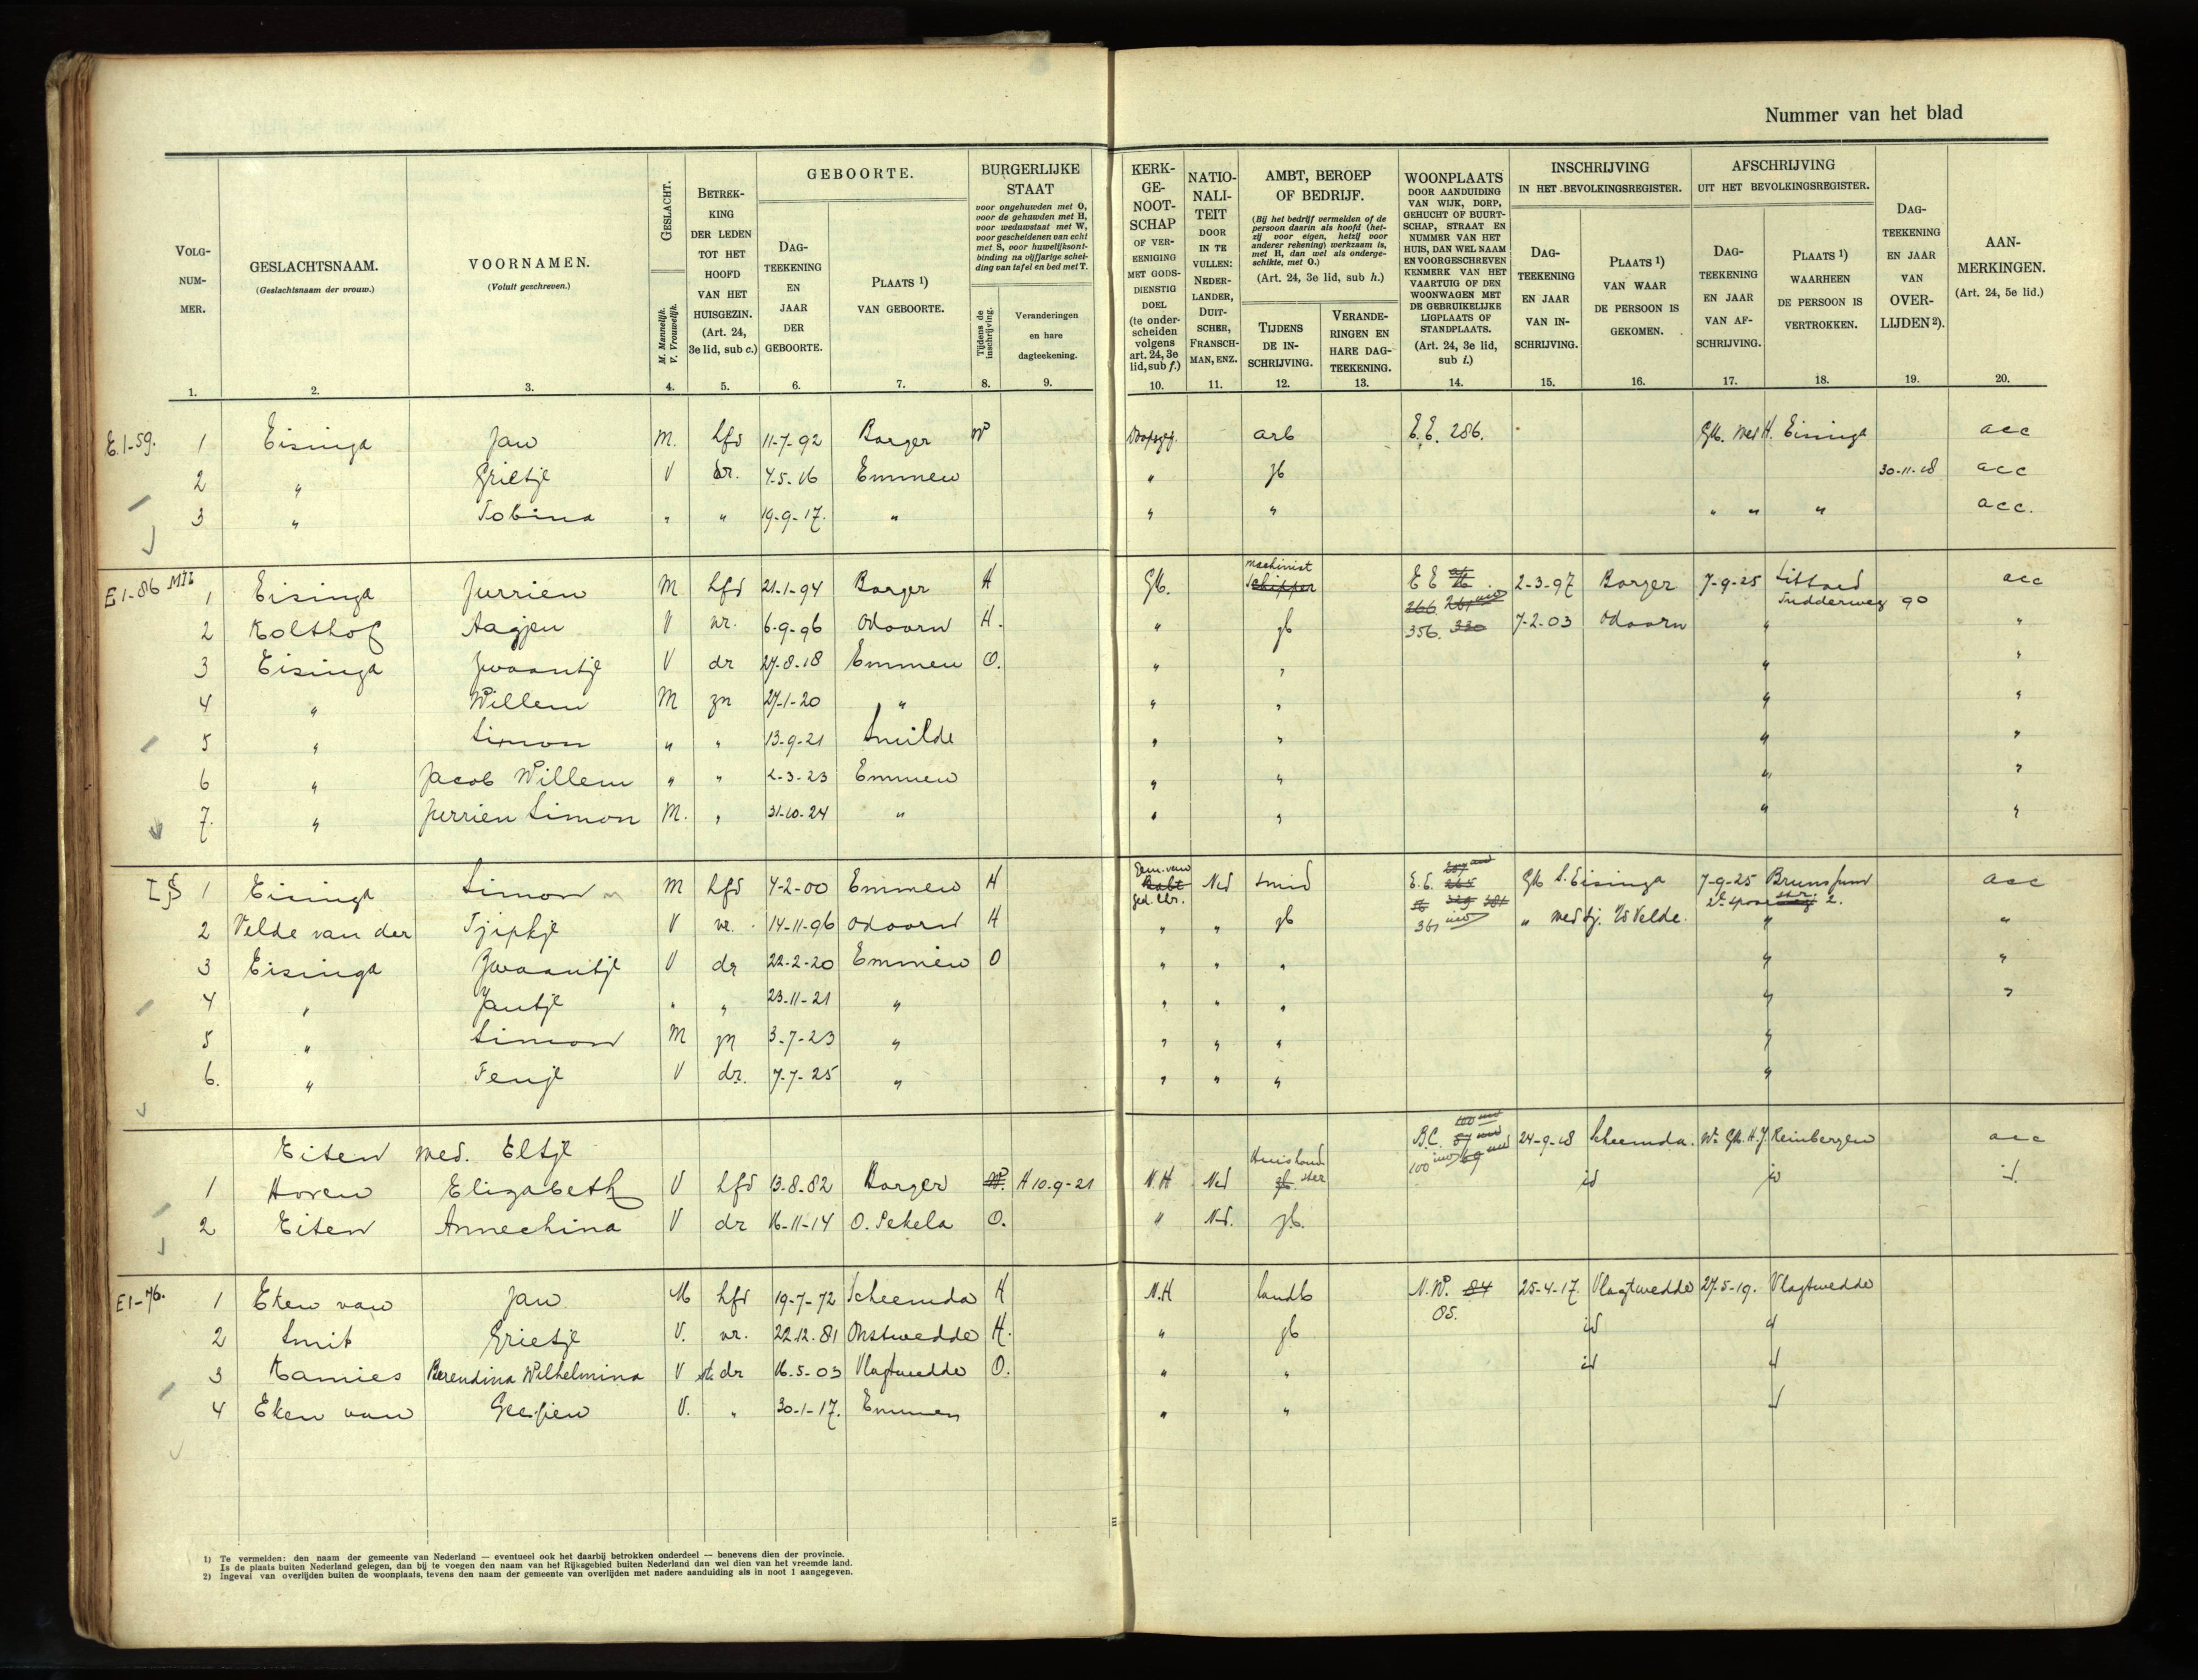 Nummer van het blad
VOLG-NUM-MER. GESLACHTSNAAM. (Geslachtsnaam der vrouw.) VOORNAMEN. (Voluit geschreven.) GESLACHT. M. Mannelijk. V. Vrouwelijk. BETREK-KING DER LEDEN TOT HET HOOFD VAN HET HUISGEZIN. (Art. 24, 3e lid, sub c.)
GEBOORTE. DAG-TEEKENING EN JAAR DER GEBOORTE. PLAATS 1) VAN GEBOORTE.
BURGERLIJKE STAAT
voor ongehuwden met O, voor de gehuwden met H, voor weduwstaat met W, voor gescheidenen van echt met S, voor huwelijksont-binding na vijfjarige schei-ding van tafel en bed met T.
Tijdens de inschrijving. Veranderingen en hare dagteekening.
KERK-GE-NOOT-SCHAP OF VER-EENIGING MET GODS-DIENSTIG DOEL (te onder-scheiden volgens art. 24, 3e lid, sub f.)
NATIO-NALI-TEIT DOOR IN TE VULLEN: NEDER-LANDER, DUIT-SCHER, FRANSCH-MAN, ENZ.
AMBT, BEROEP OF BEDRIJF. (Bij het bedrijf vermelden of de persoon daarin als hoofd (het-zij voor eigen, hetzij voor anderer rekening) werkzaam is, met H, dan wel als onderge-schikte, met O.) (Art. 24, 3e lid, sub h.)
TIJDENS DE IN-SCHRIJVING. VERANDE-RINGEN EN HARE DAG-TEEKENING.
WOONPLAATS DOOR AANDUIDING VAN WIJK, DORP, GEHUCHT OF BUURT-SCHAP, STRAAT EN NUMMER VAN HET HUIS, DAN WEL NAAM EN VOORGESCHREVEN KENMERK VAN HET VAARTUIG OF DEN WOONWAGEN MET DE GEBRUIKELIJKE LIGPLAATS OF STANDPLAATS. (Art. 24, 3e lid, sub i.)
INSCHRIJVING IN HET BEVOLKINGSREGISTER. DAG-TEEKENING EN JAAR VAN IN-SCHRIJVING. PLAATS 1) VAN WAAR DE PERSOON IS GEKOMEN.
AFSCHRIJVING UIT HET BEVOLKINGSREGISTER. DAG-TEEKENING EN JAAR VAN AF-SCHRIJVING. PLAATS 1) WAARHEEN DE PERSOON IS VERTROKKEN.
DAG-TEEKENING EN JAAR VAN OVER-LIJDEN 2). AAN-MERKINGEN. (Art. 24, 5e lid.)
1. 2. 3. 4. 5. 6. 7. 8. 9. 10. 11. 12. 13. 14. 15. 16. 17. 18. 19. 20.
E.1-59. 1 Eisinga Jan M. hfd 11-7-92 Borger W Doopsgez. arb E.E. 286. Gk. Wed H. Eisinga acc
2 " Grietje V dr. 4-5-16 Emmen " gb 30-11-18 acc
3 " Tobina " " 19-9-17. " " " " " " acc.
E1-86 1 Eisinga Jurrien M hfd 21-1-94 Borger H Gk. machinist schipper E E 2-3-97 Borger 7-9-25 Sittard acc
Tudderweg 90
2 Kolthof Aagjen V vr. 6-9-96 Odoorn H. " gb 266. 261 356. 330 7-2-03 Odoorn " "
3 Eisinga Zwaantje V dr 27-8-18 Emmen O. " " " "
4 " Willem M zn 27-1-20 " " " " "
5 " Simon " " 13-9-21 Smilde " " " "
6 " Jacob Willem " " 2-3-23 Emmen " " " "
7. " Jurrien Simon M. " 31-10-24 " " " " "
1 Eisinga Simon M hfd 4-2-00 Emmen H Ned smid E.E. 265 Gk S. Eisinga 7-9-25 Brunssum acc
2 Velde van der Tjipkje V vr. 14-11-96 Odoorn H " " gb 361 329 381 " wed Tj. vd Velde. " "
3 Eisinga Zwaantje V dr 22-2-20 Emmen O " " " " "
4 " Jantje " " 23-11-21 " " " " " "
5 " Simon M zn 3-7-23 " " " " "
6. " Fenje V dr. 7-7-25 " " " " "
Eiten wed. Eltje B.C. 24-9-18 Scheemda. Gk. H.J. Reinbergen acc
1 Hoven Elizabeth V hfd 13-8-82 Borger W. H 10-9-21 N.H Ned gb Huishoudster 100 69 id id id.
2 Eiten Annechina V dr 16-11-14 O. Pekela O. " Ned. gb.
E1-76. 1 Eken van Jan M hfd 19-7-72 Scheemda H N.H landb N.W. 84 25-4-17. Vlagtwedde 27-5-19. Vlagtwedde
2 Smit Grietje V. vr. 22-12-81 Onstwedde H. " gb 05. id id
3 Kamies Berendina Wilhelmina V st. dr 16-5-03 Vlagtwedde O. " " id id
4 Eken van Geesien V. " 30-1-17. Emmen " " id
1) Te vermelden: den naam der gemeente van Nederland — eventueel ook het daarbij betrokken onderdeel — benevens dien der provincie.
Is de plaats buiten Nederland gelegen, dan bij te voegen den naam van het Rijksgebied buiten Nederland dan wel dien van het vreemde land.
2) Ingeval van overlijden buiten de woonplaats, tevens den naam der gemeente van overlijden met nadere aanduiding als in noot 1 aangegeven.